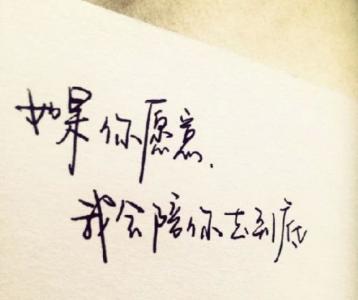 如果你愿意.
我会陪你去到底